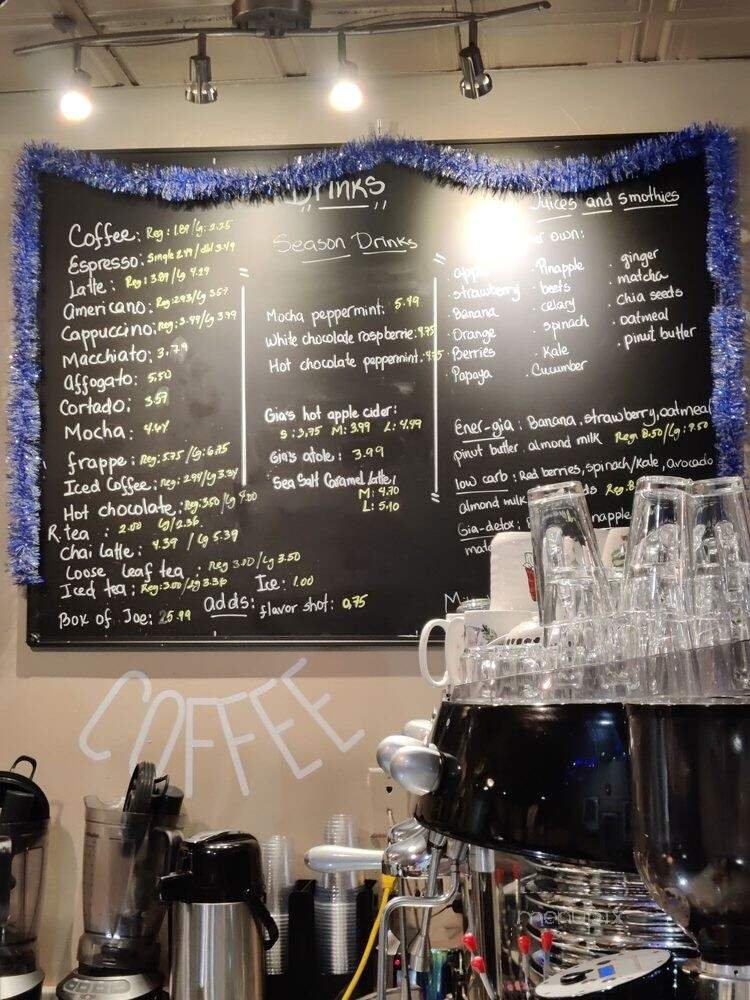 Drinks
Coffee: Reg: 1.89/Lg: 2.25
Espresso: Single 2.49/dbl 3.49
Latte: Reg: 3.89/Lg 4.29
Americano: Reg: 2.93/Lg 3.57
Cappuccino: Reg: 3.49/Lg 3.99
Macchiato: 3.79
affogato: 5.50
Cortado: 3.57
Mocha: 4.64
frappe: Reg: 5.75/Lg: 6.75
Iced Coffee: Reg: 2.94/Lg 3.34
Hot chocolate: Reg: 3.50/Lg 4.00
R. tea : 2.00 Lg/2.36
Chai latte: 4.39 / Lg 5.39
Loose leaf tea : Reg 3.00/Lg 3.50
Iced tea: Reg: 3.00/Lg 3.36
Box of Joe: 25.99
Ice: 1.00
adds: flavor shot: 0.75
Season Drinks
Mocha peppermint: 5.49
White chocolate raspberrie: 4.75
Hot chocolate peppermint:
Gia's hot apple cider:
S: 3.75 M: 3.99 L: 4.99
Gia's atole: 3.99
Sea Salt Caramel latte:
M: 4.70
L: 5.10
Juices and smothies
own:
strawberry
Banana
Orange
Berries
Papaya
Pinapple
beets
celary
spinach
Kale
Cucumber
ginger
matcha
chia seeds
oatmeal
pinut butter
Ener-gia: Banana, strawberry, oatmeal
pinut butter, almond milk Reg: 8.50/Lg: 9.50
low carb: Red berries, spinach/kale, avocado
almond milk
Gia-detox:
COFFEE
menupix